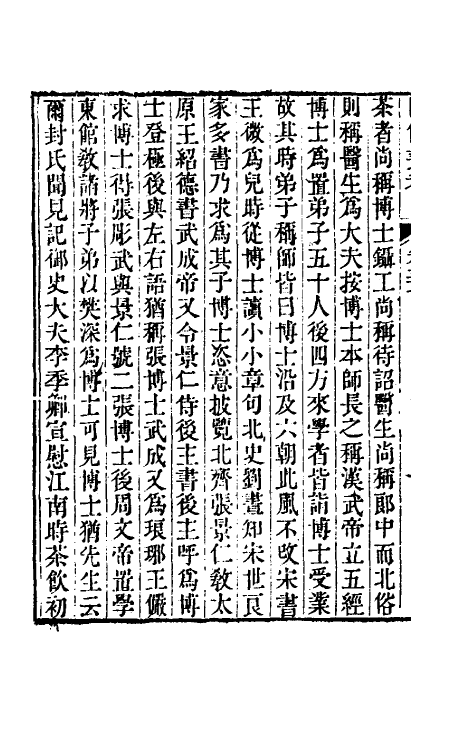 茶者尚稱博士鑷工尚稱待詔醫生尚稱郎中而北俗
則稱醫生爲大夫按博士本師長之稱漢武帝立五經
博士爲置弟子五十人後四方來學者皆詣博士受業
故其時弟子稱師皆曰博士沿及六朝此風不改宋書
王微爲兒時從博士讀小小章句北史劉晝知宋世良
家多書乃求爲其子博士恣意披覽北齊張景仁敎太
原王紹德書武成帝又令景仁侍後主書後主呼爲博
士登極後與左右語猶稱張博士武成又為琅邪王儼
求博士得張彫武與景仁號二張博士後周文帝置學
東館敎諸將子弟以樊深爲博士可見博士猶先生云
爾封氏聞見記御史大夫李季卿宣慰江南時茶飲初